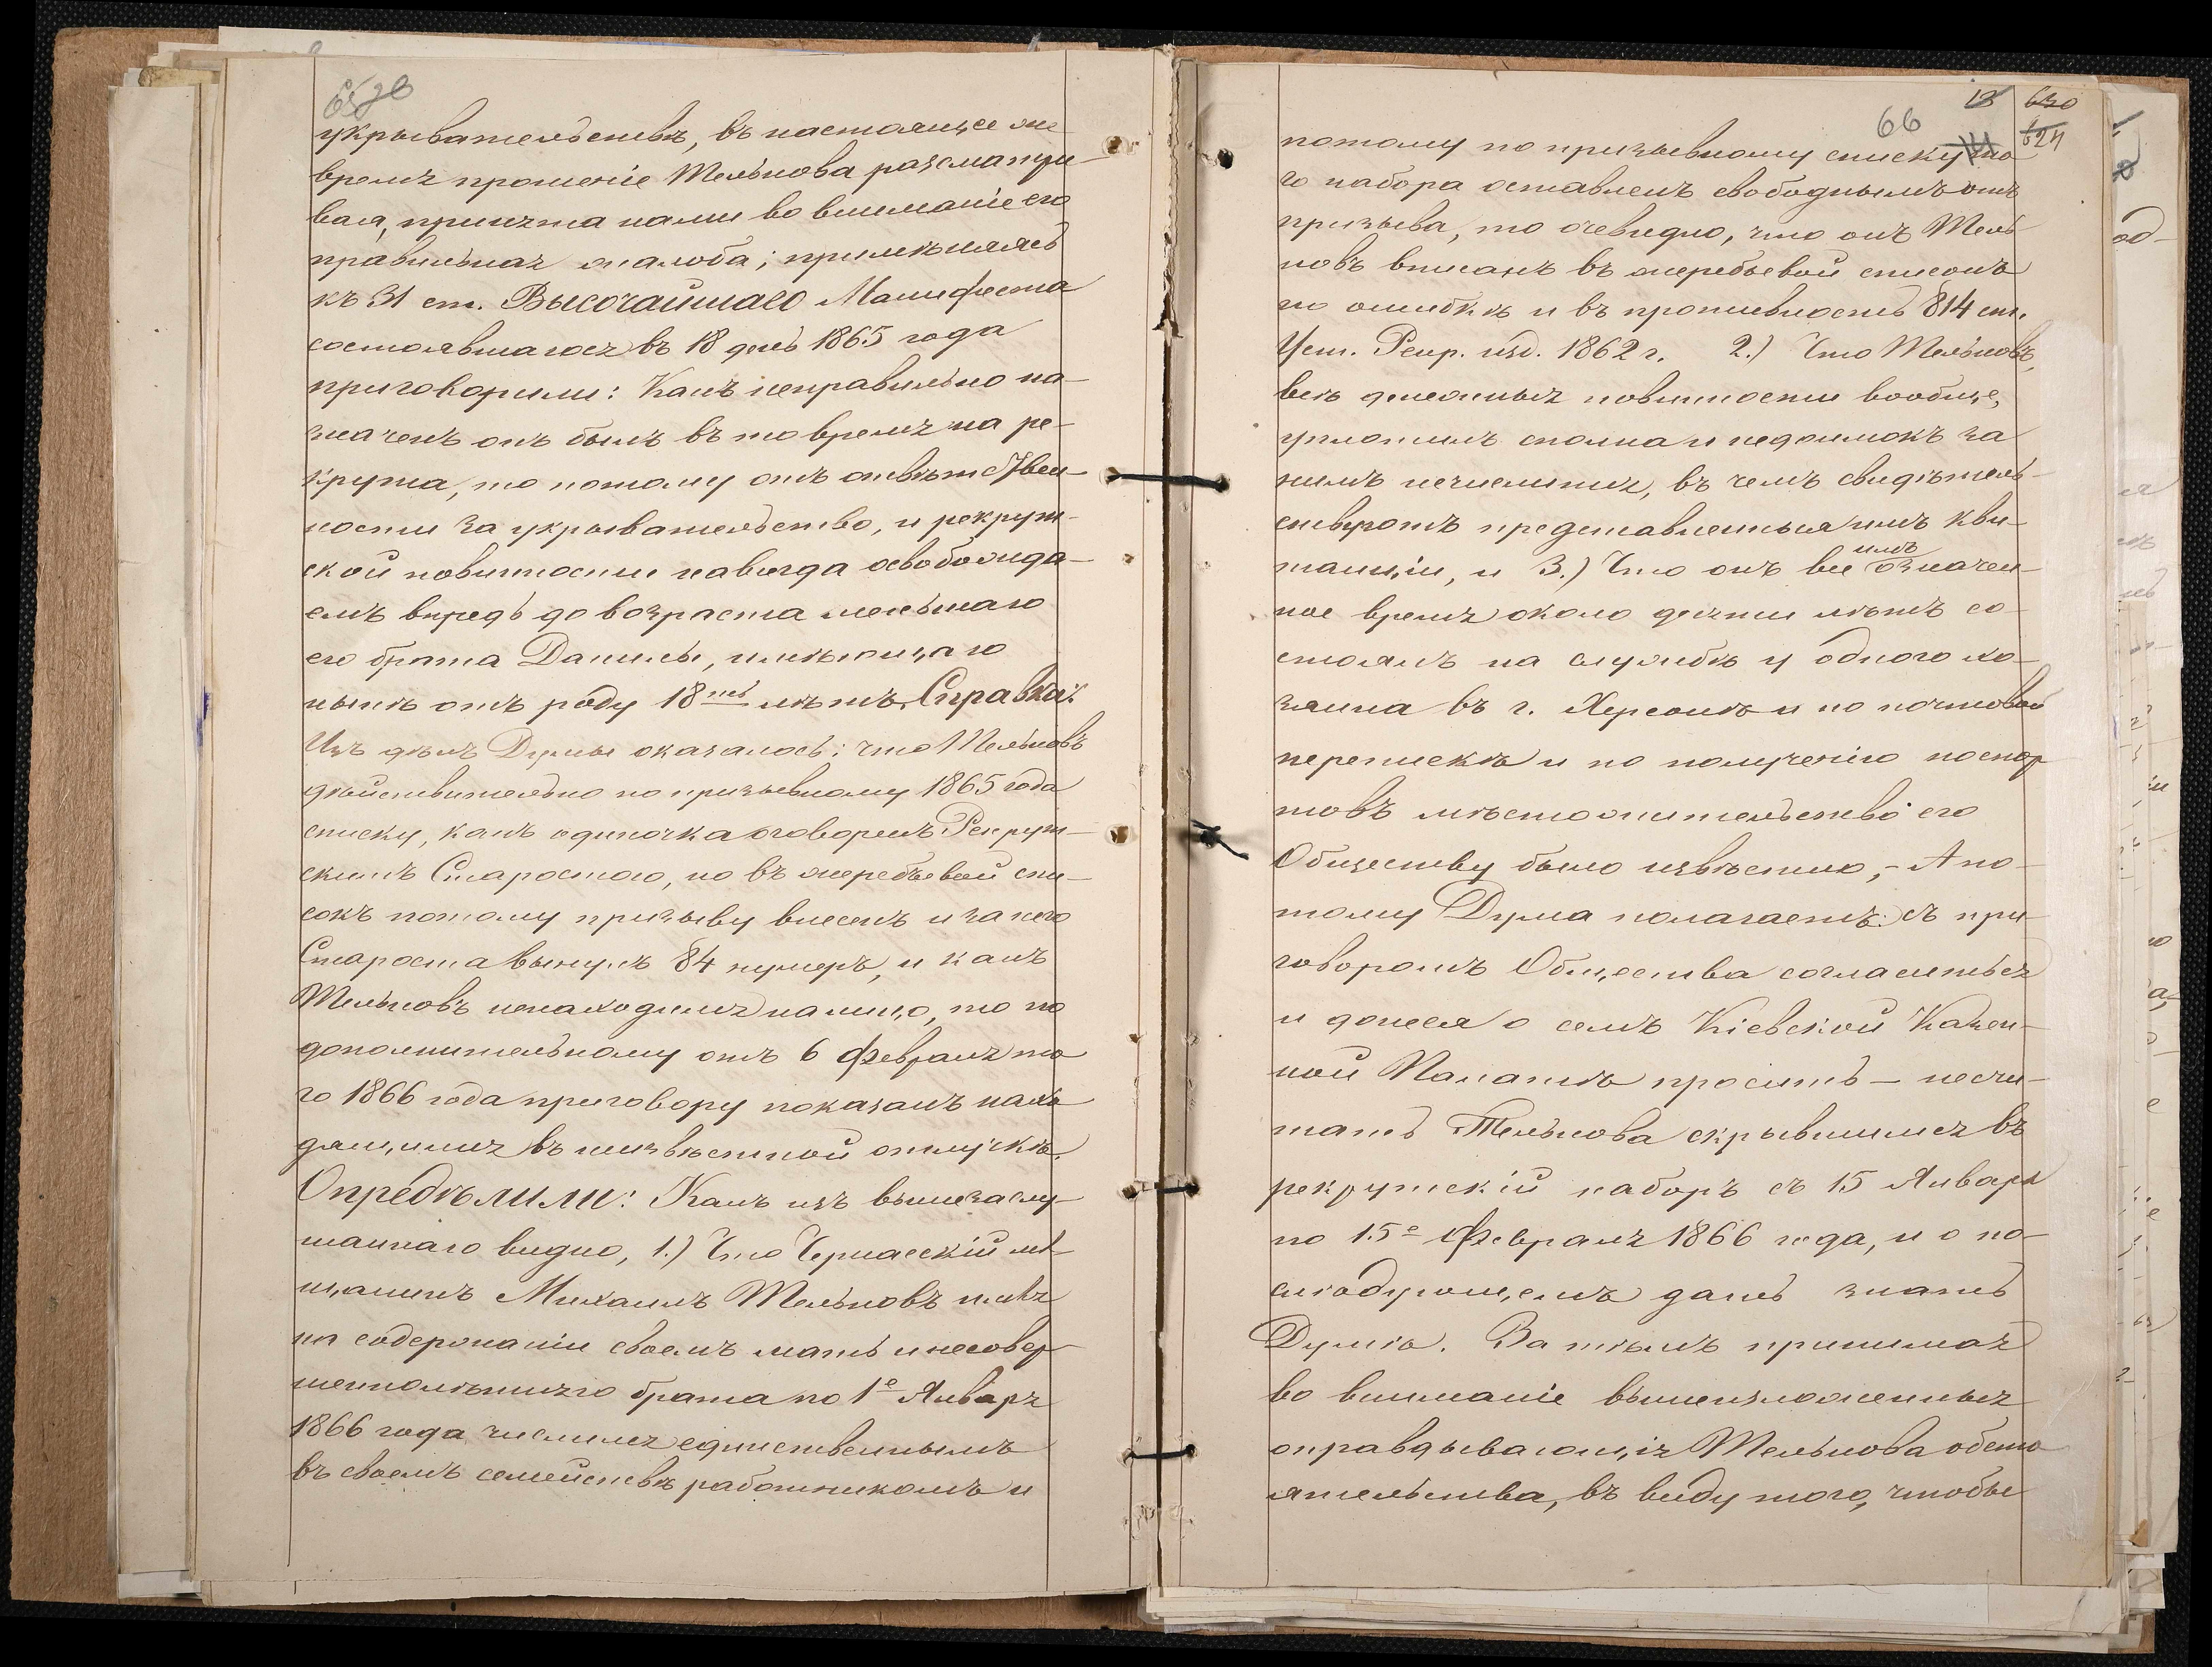 укрывательствѣ, въ настоящее же
время прошеніе Тельнова разсматри-
вая, принята нами во вниманіе его
правильная жалоба; примѣняясь
къ 31 ст. Высочайшаго Манифеста
состоявшагося въ 18 день 1865 года
приговорили: Какъ неправильно на-
значенъ онъ былъ въ то время на ре-
крута, то потому отъ отвѣтствен-
ности за укрывательство, и рекрут-
ской повинности навсегда освобожда-
емъ впредь до возраста меньшаго
его брата Данилы, имѣющаго
нынѣ отъ роду 18ть лѣтъ. Справка:
Изъ дѣлъ Думы оказалось: что Тельновъ
дѣйствительно по призывному 1865 года
списку, какъ одиночка оговоренъ Рекрут-
скимъ Старостою, но въ жеребьевой спи-
сокъ потому призыву внесенъ и за него
Староста вынулъ 84 нумеръ, и какъ
Тельновъ ненаходился налицо, то по
дополнительному отъ 6 февраля то
го 1866 года приговору показанъ нахо
дящимся въ неизвѣстной отлучкѣ.
Опредѣлили: Какъ изъ вышезаслу-
шаннаго видно, 1.) Что Черкасскій мѣ-
щанинъ Михаилъ Тельновъ имѣя
на содержаніи своемъ мать и несовер
шеннолѣтняго брата по 1е Января
1866 года числился единственнымъ
въ своемъ семействѣ работникомъ и
66 18 630
624
потому по призывному списку то
го набора оставленъ свободнымъ отъ
призыва, то очевидно, что онъ Тель
новъ вписанъ въ жеребьевой списокъ
по ошибкѣ и въ противность 814 ст.
Уст. Рекр. изд. 1862 г. 2.) Что Тельновъ,
всѣ денежныя повинности вообще,
уплатилъ сполна и недоимокъ за
нимъ нечислится, въ чемъ свидѣтель-
ствуютъ представленныя имъ кви-
танціи, и 3.) Что онъ все имъ означен-
ное время около десяти лѣтъ со-
стоялъ на службѣ у одного хо-
зяина въ г. Херсонѣ и по почтовой
перепискѣ и по полученію паспор
товъ мѣстожительство его
Обществу было извѣстно, - А по-
тому Дума полагаетъ: съ при-
говоромъ Общества согласиться
и донеся о семъ Кіевской Казен-
ной Палатѣ просить — несчи-
тать Тельнова скрывшимся въ
рекрутскій наборъ съ 15 Января
по 15е Февраля 1866 года, и о по-
слѣдующемъ дать знать
Думѣ. За тѣмъ принимая
во вниманіе вышеизложенныя
оправдывающія Тельнова обсто
ятельства, въ виду того, чтобы